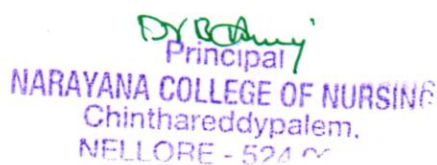 Principal
NARAYANA COLLEGE OF NURSING
Chinthareddypalem.
NELLORE - 524